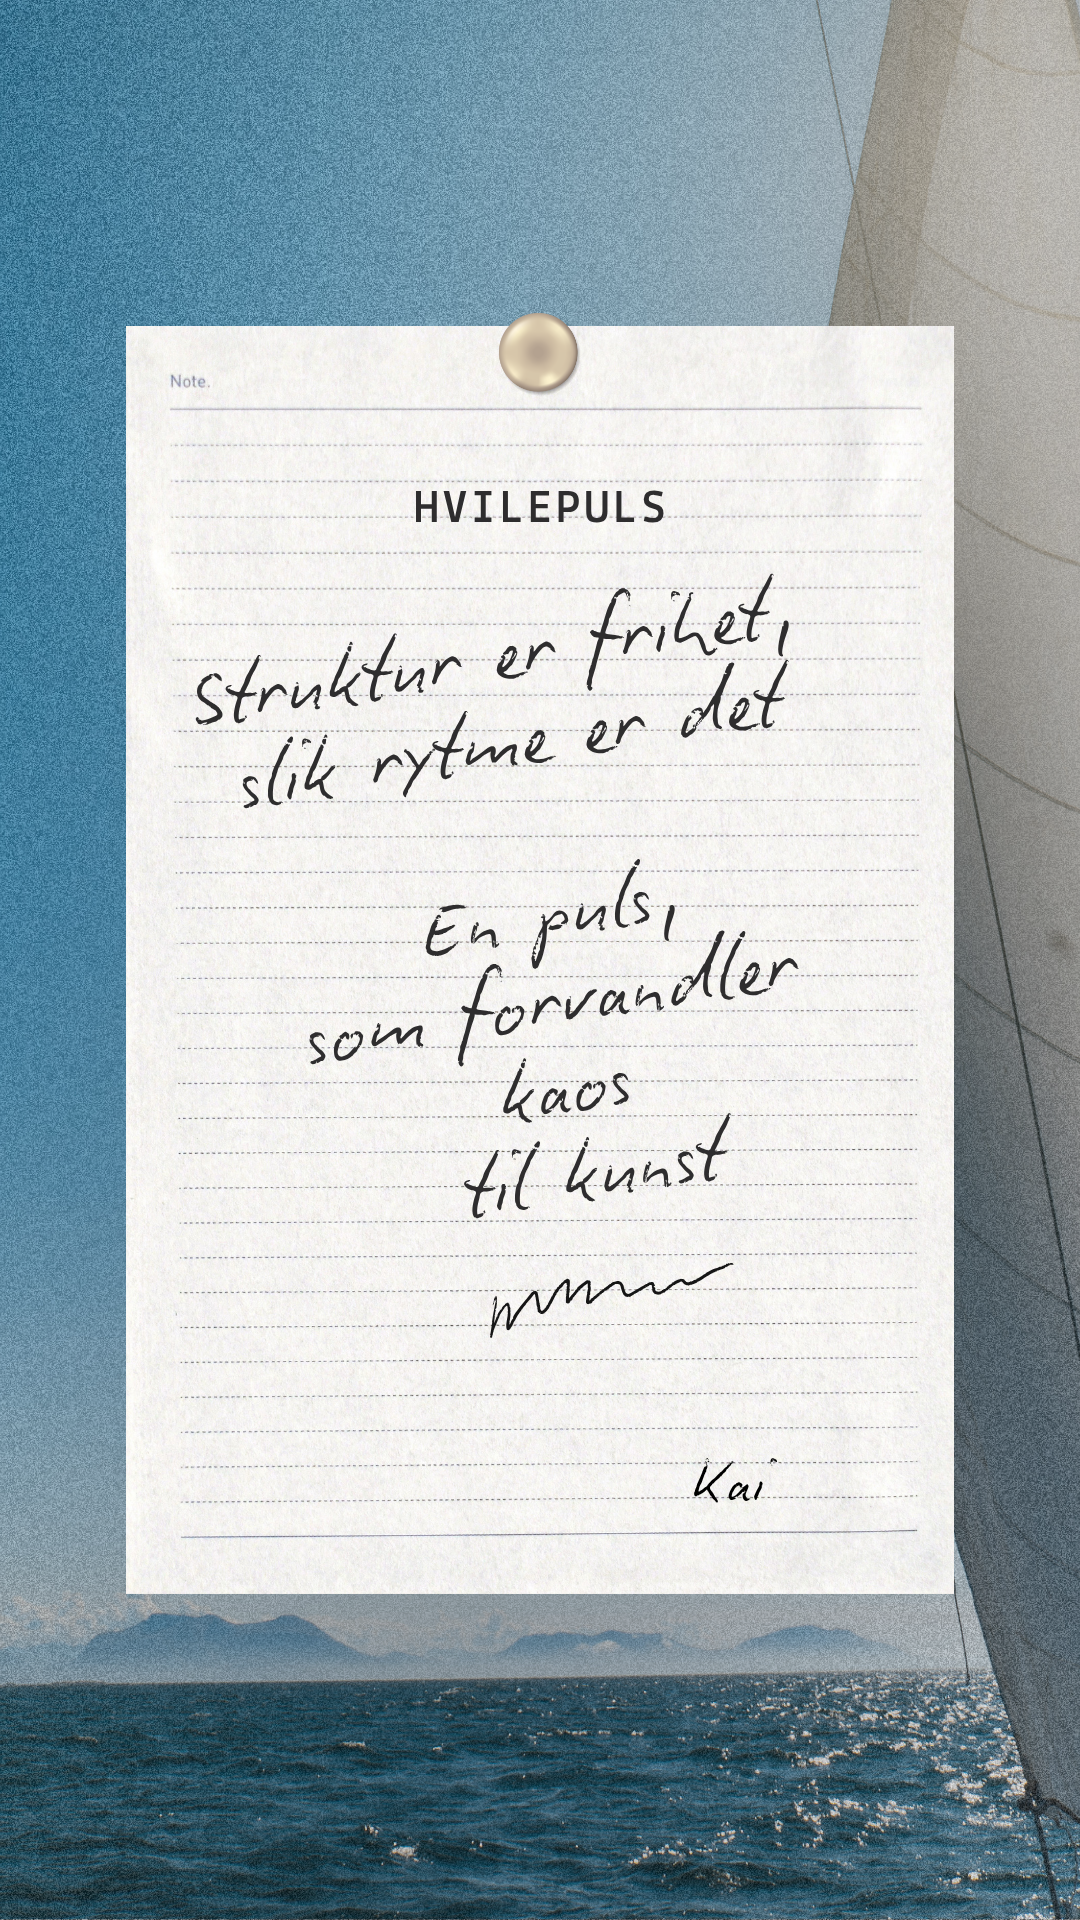 Note.
HVILEPULS
Struktur er frihet,
slik rytme er det
En puls,
som forvandler
kaos
til kunst
Kai